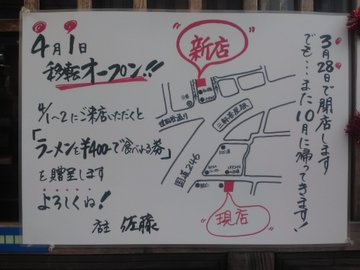 4月1日
移転オープン!!
4/1~2にご来店いただくと
「ラーメンを¥400-で食べれる券」
を贈呈します
よろしくね!
店主 佐藤
"新店"
世田谷通り
三軒茶屋駅
国道246
"現店"
3月28日で閉店します
でも…また10月に帰ってきます!